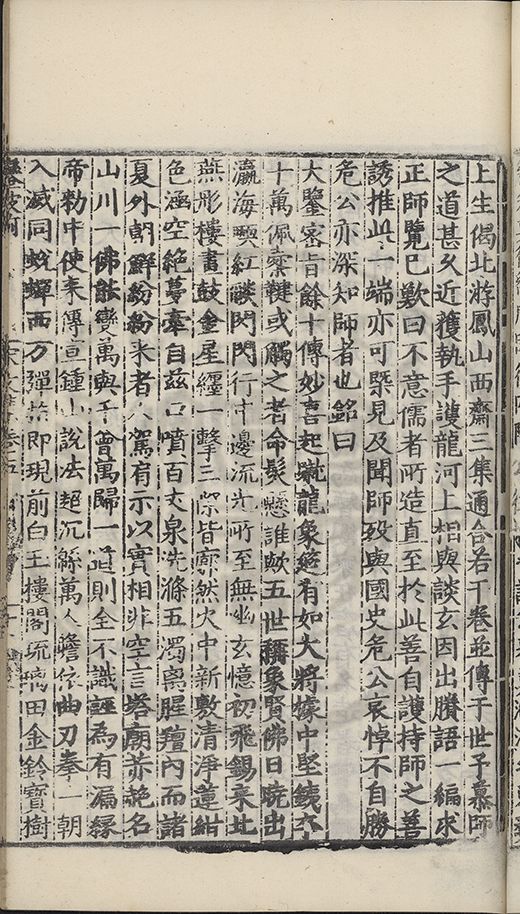 上生偈北游鳳山西齋三集通合若干卷並傳于世予慕師
之道甚久近獲執手護龍河上相與談玄因出賸語一編求
正師覽已歎曰不意儒者所造直至於此善自護持師之善
誘推此一端亦可槩見及聞師歿與國史危公哀悼不自勝
危公亦深知師者也銘曰
大鑒密旨餘十傳妙喜起蹴龍象筵有如大將據中堅鐵
十萬佩櫜鞬或觸之者命髮懸誰歟五世稱象賢佛日曉出
瀛海堧紅燄閃閃行中邊流光所至無幽玄憶初飛錫來北
燕彤樓畫鼓金星纏一擊三際皆廓然火中新敷清淨蓮紺
色涵空絕蔓牽自茲口噴百丈泉洗滌五濁與腥羶內而諸
夏外朝鮮紛紛來者八駕肩示以實相非空言塔廟赤赩名
山川一佛能變萬與千會萬歸一道則全不識謹為有漏緣
帝勅中使來傳宣鍾山說法超沉緜萬人瞻依曲刀拳一朝
入滅同蛻蟬西方彈指即現前白玉樓閣琉璃田金鈴寶樹